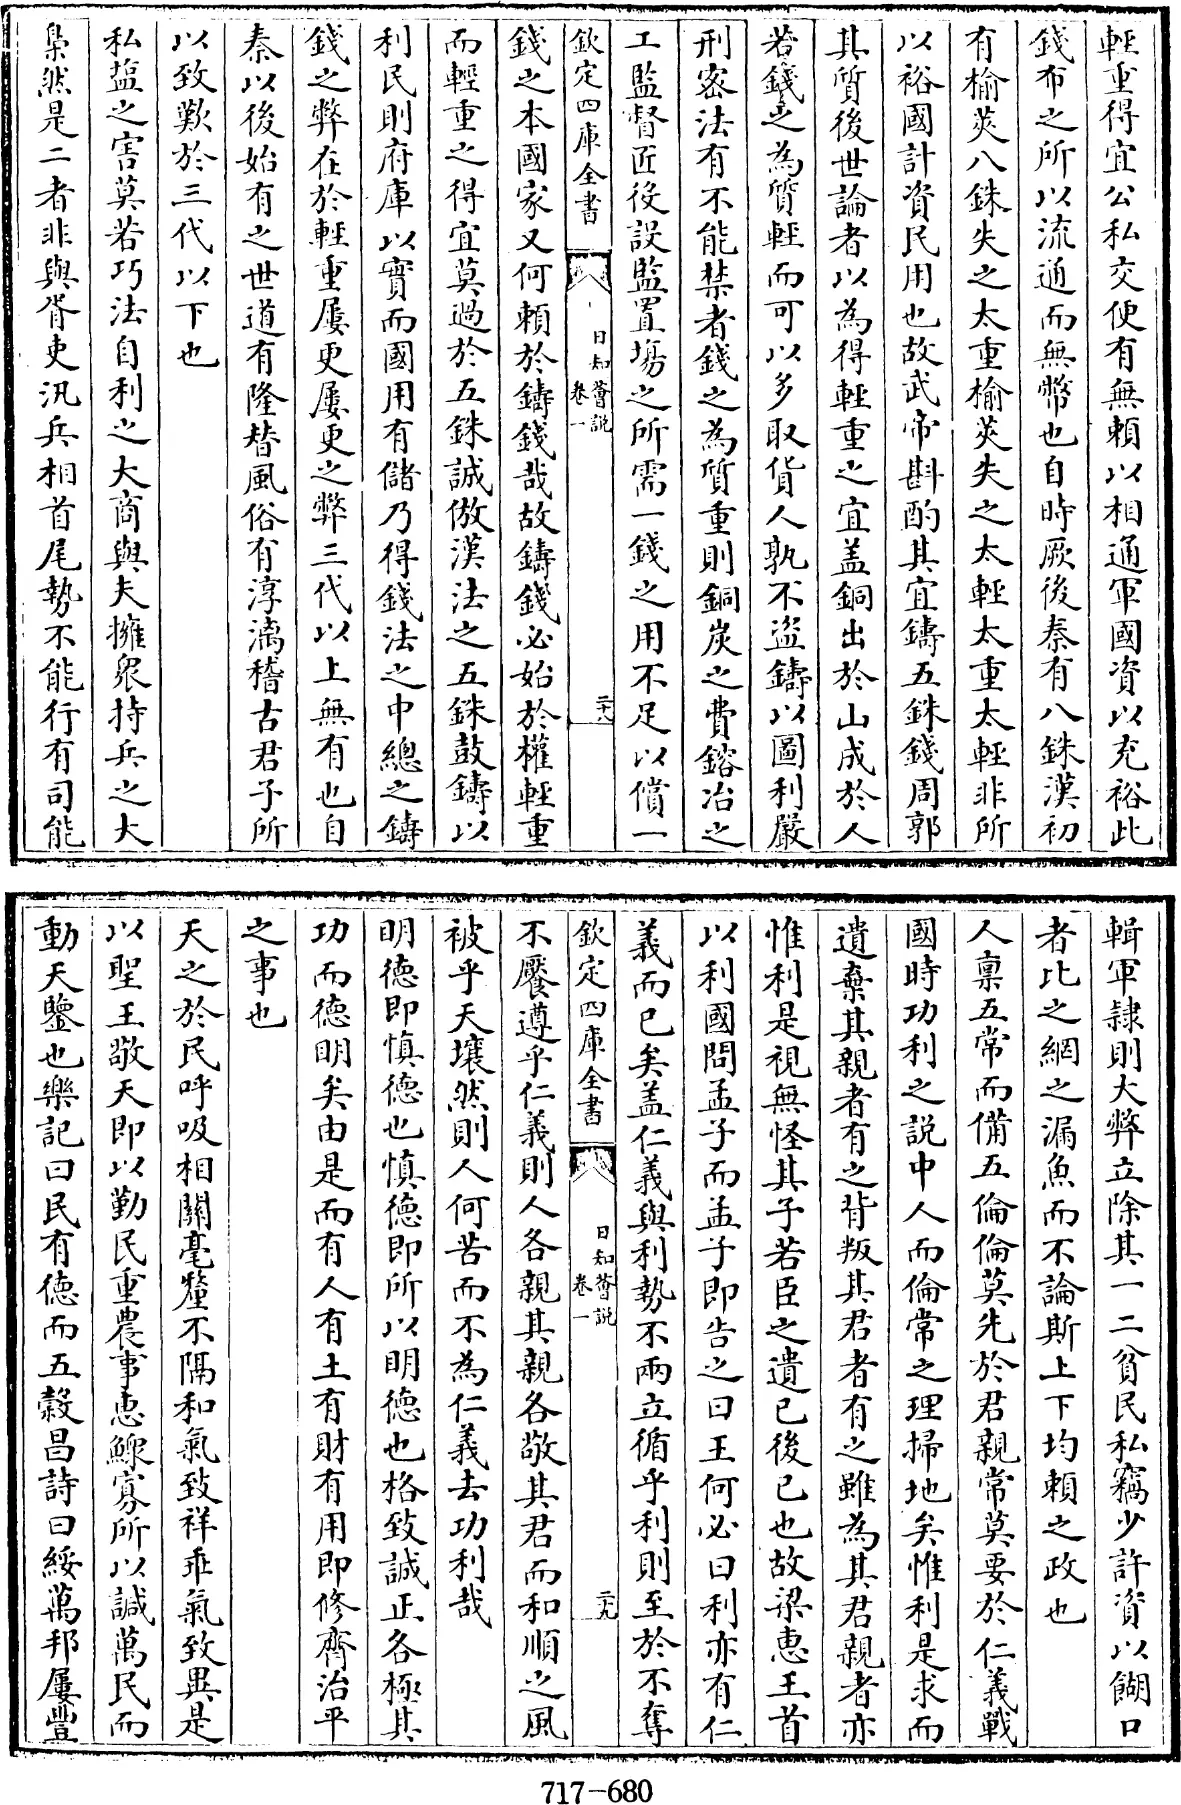 輕重得宜公私交便有無賴以相通軍國資以充裕此
錢布之所以流通而無幣也自時厥後秦有八銖漢初
有榆莢八銖失之太重榆莢失之太輕太重太輕非所
以裕國計資民用也故武帝斟酌其宜鑄五銖錢周郭
其質後世論者以為得輕重之宜盖銅出於山成於人
若錢之為質輕而可以多取貨人孰不盗鑄以圖利嚴
刑宻法有不能禁者錢之為質重則銅炭之費鎔冶之
工監督匠役設監置塲之所需一錢之用不足以償一
欽定四庫全書
日知薈説
卷一
二十八
錢之本國家又何頼於鑄錢哉故鑄錢必始於權輕重
而輕重之得宜莫過於五銖誠倣漢法之五銖鼓鑄以
利民則府庫以實而國用有儲乃得錢法之中總之鑄
錢之弊在於輕重屢更屢更之弊三代以上無有也自
秦以後始有之世道有隆替風俗有淳漓稽古君子所
以致歎於三代以下也
私塩之害莫若巧法自利之大商與夫擁衆持兵之大
梟然是二者非與胥吏汛兵相首尾勢不能行有司能
輯軍隷則大弊立除其一二貧民私竊少許資以餬口
者比之網之漏魚而不論斯上下均賴之政也
人禀五常而備五倫倫莫先於君親常莫要於仁義戰
國時功利之説中人而倫常之理掃地矣惟利是求而
遺棄其親者有之背叛其君者有之雖為其君親者亦
惟利是視無怪其子若臣之遺已後已也故梁惠王首
以利國問孟子而孟子即告之曰王何必曰利亦有仁
義而已矣盖仁義與利勢不兩立循乎利則至於不奪
欽定四庫全書
日知薈説
卷一
二十九
不饜遵乎仁義則人各親其親各敬其君而和順之風
被乎天壤然則人何苦而不為仁義去功利哉
明德即慎德也慎德即所以明德也格致誠正各極其
功而德明矣由是而有人有土有財有用即修齊治平
之事也
天之於民呼吸相關毫釐不隔和氣致祥乖氣致異是
以聖王敬天即以勤民重農事恵鰥寡所以諴萬民而
動天鑒也樂記曰民有徳而五穀昌詩曰綏萬邦屢豐
717-680